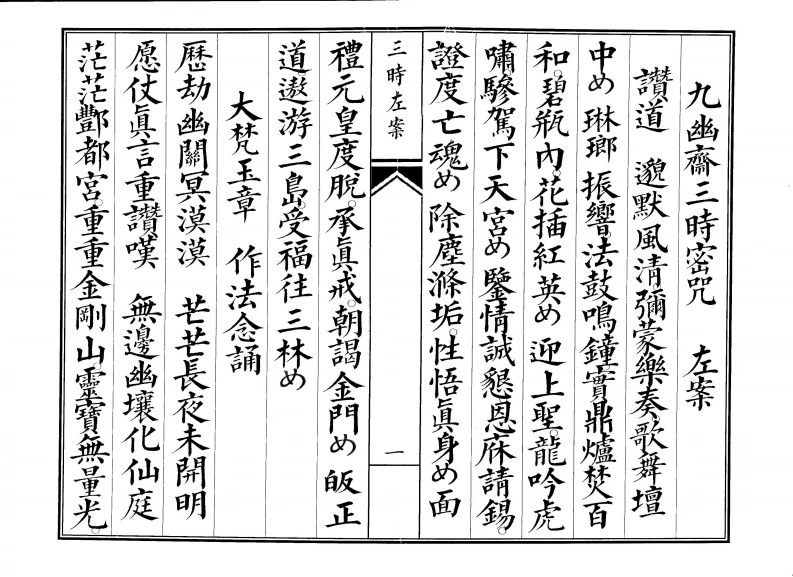 九幽齋三時密咒　左案
讚道　邈默風清彌蒙樂奏。歌舞壇
中め 琳瑯振響。法鼓鳴鐘。寶鼎爐焚百
和。碧瓶內。花插紅英め 迎上聖。龍吟虎
嘯驂駕下天宮め 鑒情誠懇恩庥請錫。
證度亡魂め 除塵滌垢。性悟眞身め 面
三時左案
一
禮元皇度脫。承眞戒。朝謁金門め 皈正
道。遨游三島。受福往三林め
大梵玉章　作法念誦
歷劫幽關冥漠漠　芒芒長夜未開明
愿仗眞言重讚嘆　無邊幽壤化仙庭
茫茫酆都宮。重重金剛山靈寶無量光。